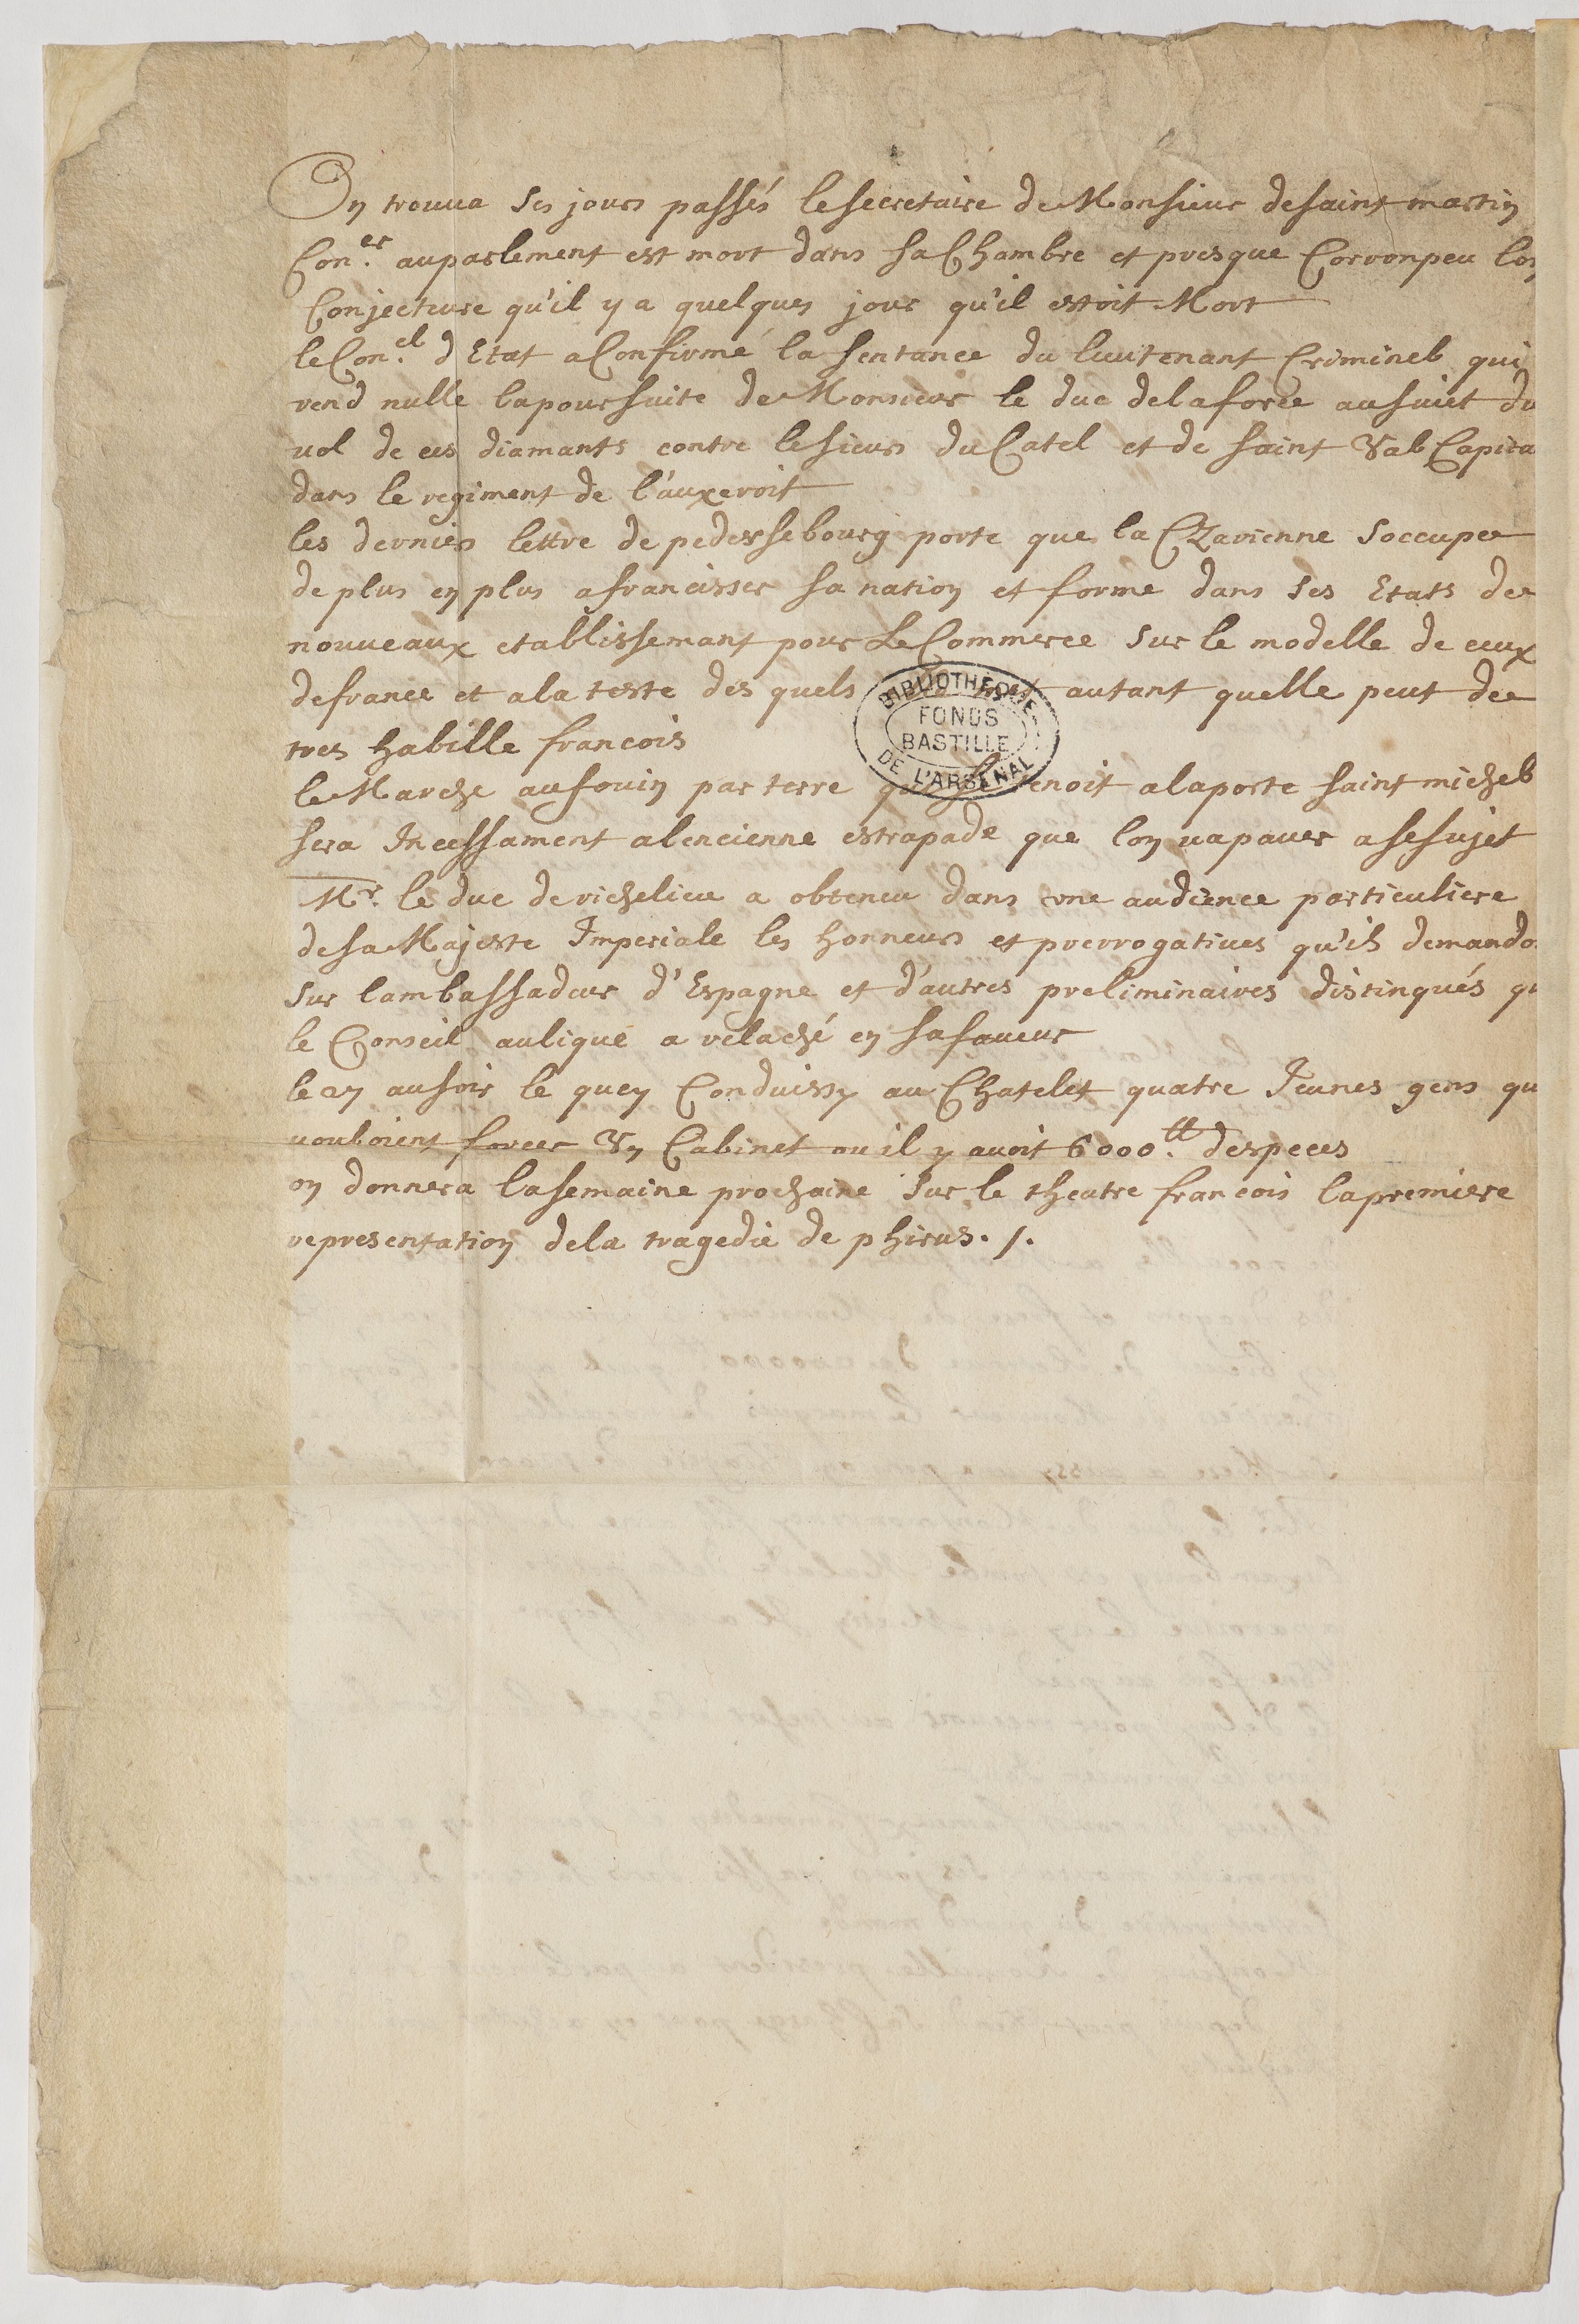 On trouua ses jours passés le secretaire de Monsieur de saint martin
Con.er au parlement est mort dans sa Chambre et presque Corronpeu lon
Conjecture qu'il y a quelques jour qu'il estoit Mort
le Con.el d Etat a Confirmé la sentance du lieutenant Criminel qui
rend nulle la poursuite de Monsieur le duc de la force au suiet du
uol de ces diamants contre le sieurs du Catel et de saint Val Capita
dans le regiment de l'auxerois
les dernies lettre de pedersebourg porte que la CZarienne s'occupee
de plus en plus a francisser sa nation et forme dans ses Etats de
nouueaux etablissemant pour Le Commerce sur le modelle de ceux
de france et a la teste des quels autant quelle peut de
tres habille francois
BIBLIOTHEQUE DE L'ARSENAL
FONDS
BASTILLE
le Marche au fouin par terre qui se tenoit a la porte saint michel
sera Incessament a lencienne estrapade que lon ua pauer a se sujet
Mr. le duc de richelieu a obteneu dans une audience particuliere
de sa Majeste Imperiale les honneurs et prerrogatiues qu'ils demando
sur lambassadeur d'Espagne et d'autres preliminaires distinqués qu
le Conseil aulique a relaché en sa faueur
le 27 au soir le guey Conduissy au Chatelet quatre Jeunes gens qu
uouloient forcer Vn Cabinet ou il y auoit 6000.tt despeces
on donnera la semaine prochaine sur le theatre francois la premiere
representation de la tragedie de phirus. /.